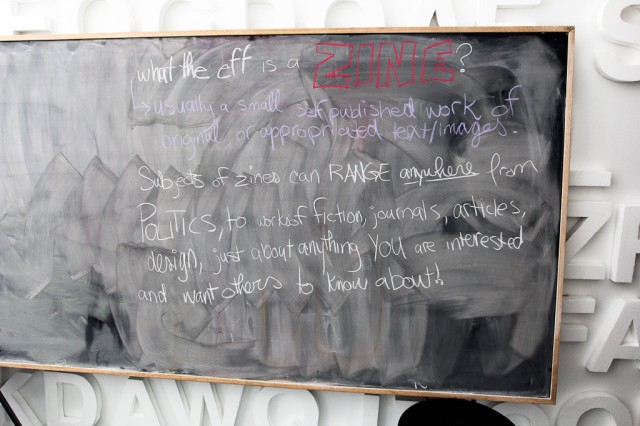 what the eff is a ZINE?
↳ usually a small self published work of
original or appropriated text/images.
Subjects of zines can RANGE anywhere from
POLITICS, to works of fiction, journals, articles,
design, just about anything YOU are interested
and want others to know about!
KDAWQ